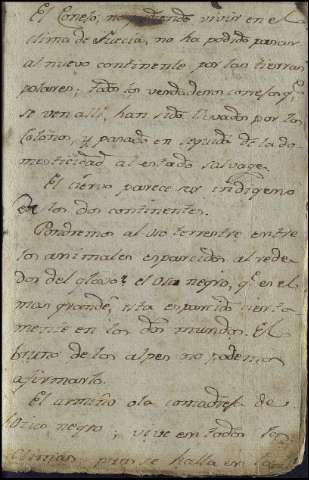 El Conejo, no pudiendo vivir en el
clima de Suecia, no ha podido pasar
al nuevo continente por las tierras
polares; todos los verdaderos conejos q.e
se ven alli, han sido llevados por los
Colonos, y pasado en seguida de la do-
mesticidad al estado salvage.
El ciervo parece ser indigeno
de los dos continentes.
Pondremos al oso terrestre entre
los animales esparcidos al rede-
dor del globo? el Oso negro, q.e es el
mas grande, esta esparcido cierta-
mente en los dos mundos. El
bruno de los alpes no podemos
afirmarlo.
El armiño o la comadreja de
negro; vive en todos los
climas pues se halla en